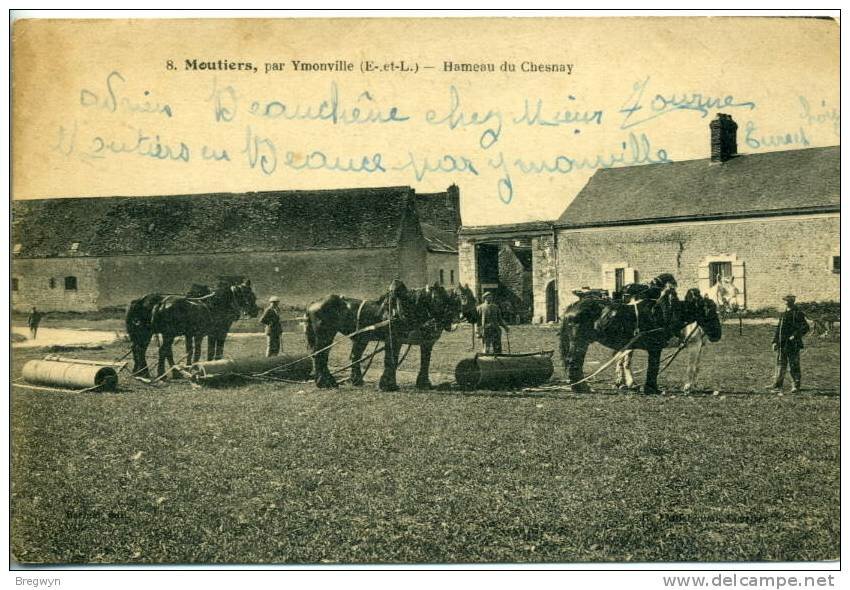 8. Moutiers, par Ymonville (E-.et-L.) — Hameau du Chesnay
adrien Beauchêne chez Mieur Tourne
Moutiers en Beauce par Ymonville Eure et
Bregwyn
http://www.delcampe.net